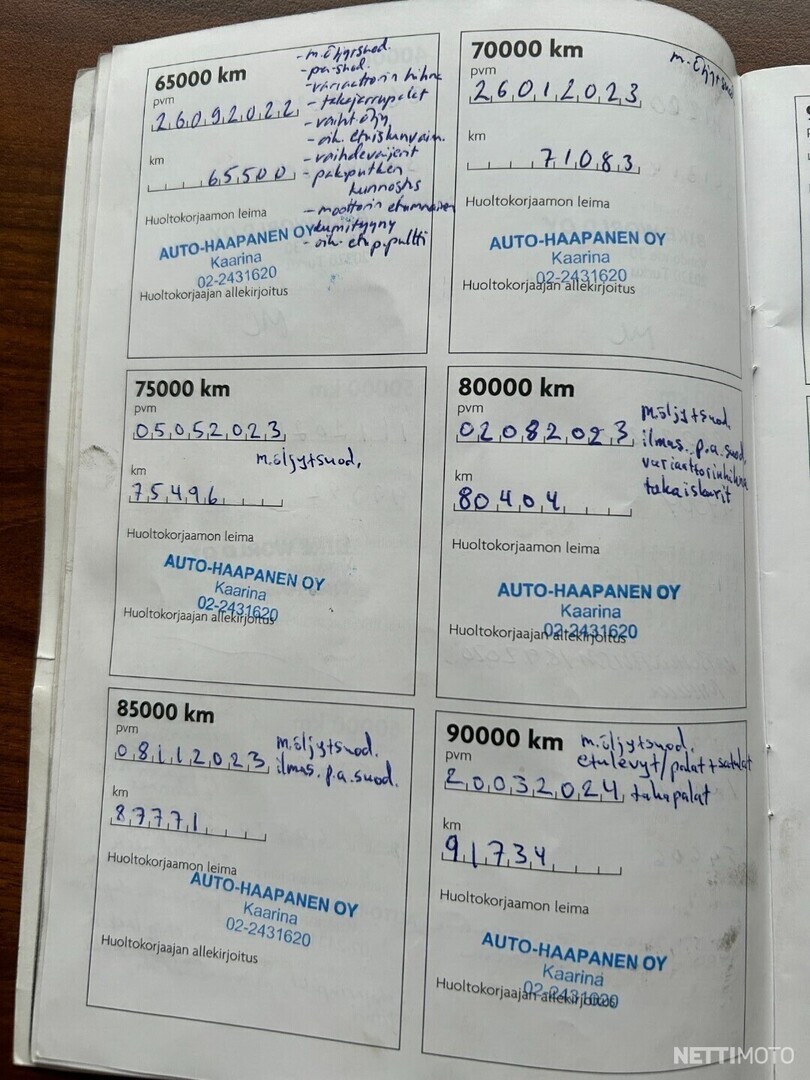 65000 km
pvm
26092022
km
65500
- m. öljy+suod.
- p.a-suod.
- variaattorin hihna
- takajarrupalat
- vaiht. öljy
- oik. etuiskunvaim.
- vaihdevaijerit
- pakoputken
kunnostus
- moottorin etummainen
kumityyny
- oik. etup. pultti
Huoltokorjaamon leima
AUTO-HAAPANEN OY
Kaarina
02-2431620
Huoltokorjaajan allekirjoitus
70000 km
pvm
26012023
m. öljy+suod
km
71083
Huoltokorjaamon leima
AUTO-HAAPANEN OY
Kaarina
02-2431620
Huoltokorjaajan allekirjoitus
75000 km
pvm
05052023
m.öljy+suod.
km
75496
Huoltokorjaamon leima
AUTO-HAAPANEN OY
Kaarina
02-2431620
Huoltokorjaajan allekirjoitus
80000 km
pvm
02082023
m.öljy+suod.
ilmas. p.a. suod.
variaattorinhihna
takaiskarit
km
80404
Huoltokorjaamon leima
AUTO-HAAPANEN OY
Kaarina
02-2431620
Huoltokorjaajan allekirjoitus
85000 km
pvm
08112023
m.öljy+suod.
ilmas. p.a. suod.
km
87771
Huoltokorjaamon leima
AUTO-HAAPANEN OY
Kaarina
02-2431620
Huoltokorjaajan allekirjoitus
90000 km
m.öljy+suod.
etulevyt/palat+satulat
takapalat
pvm
20032024
km
91734
Huoltokorjaamon leima
AUTO-HAAPANEN OY
Kaarina
02-2431620
Huoltokorjaajan allekirjoitus
NETTIMOTO